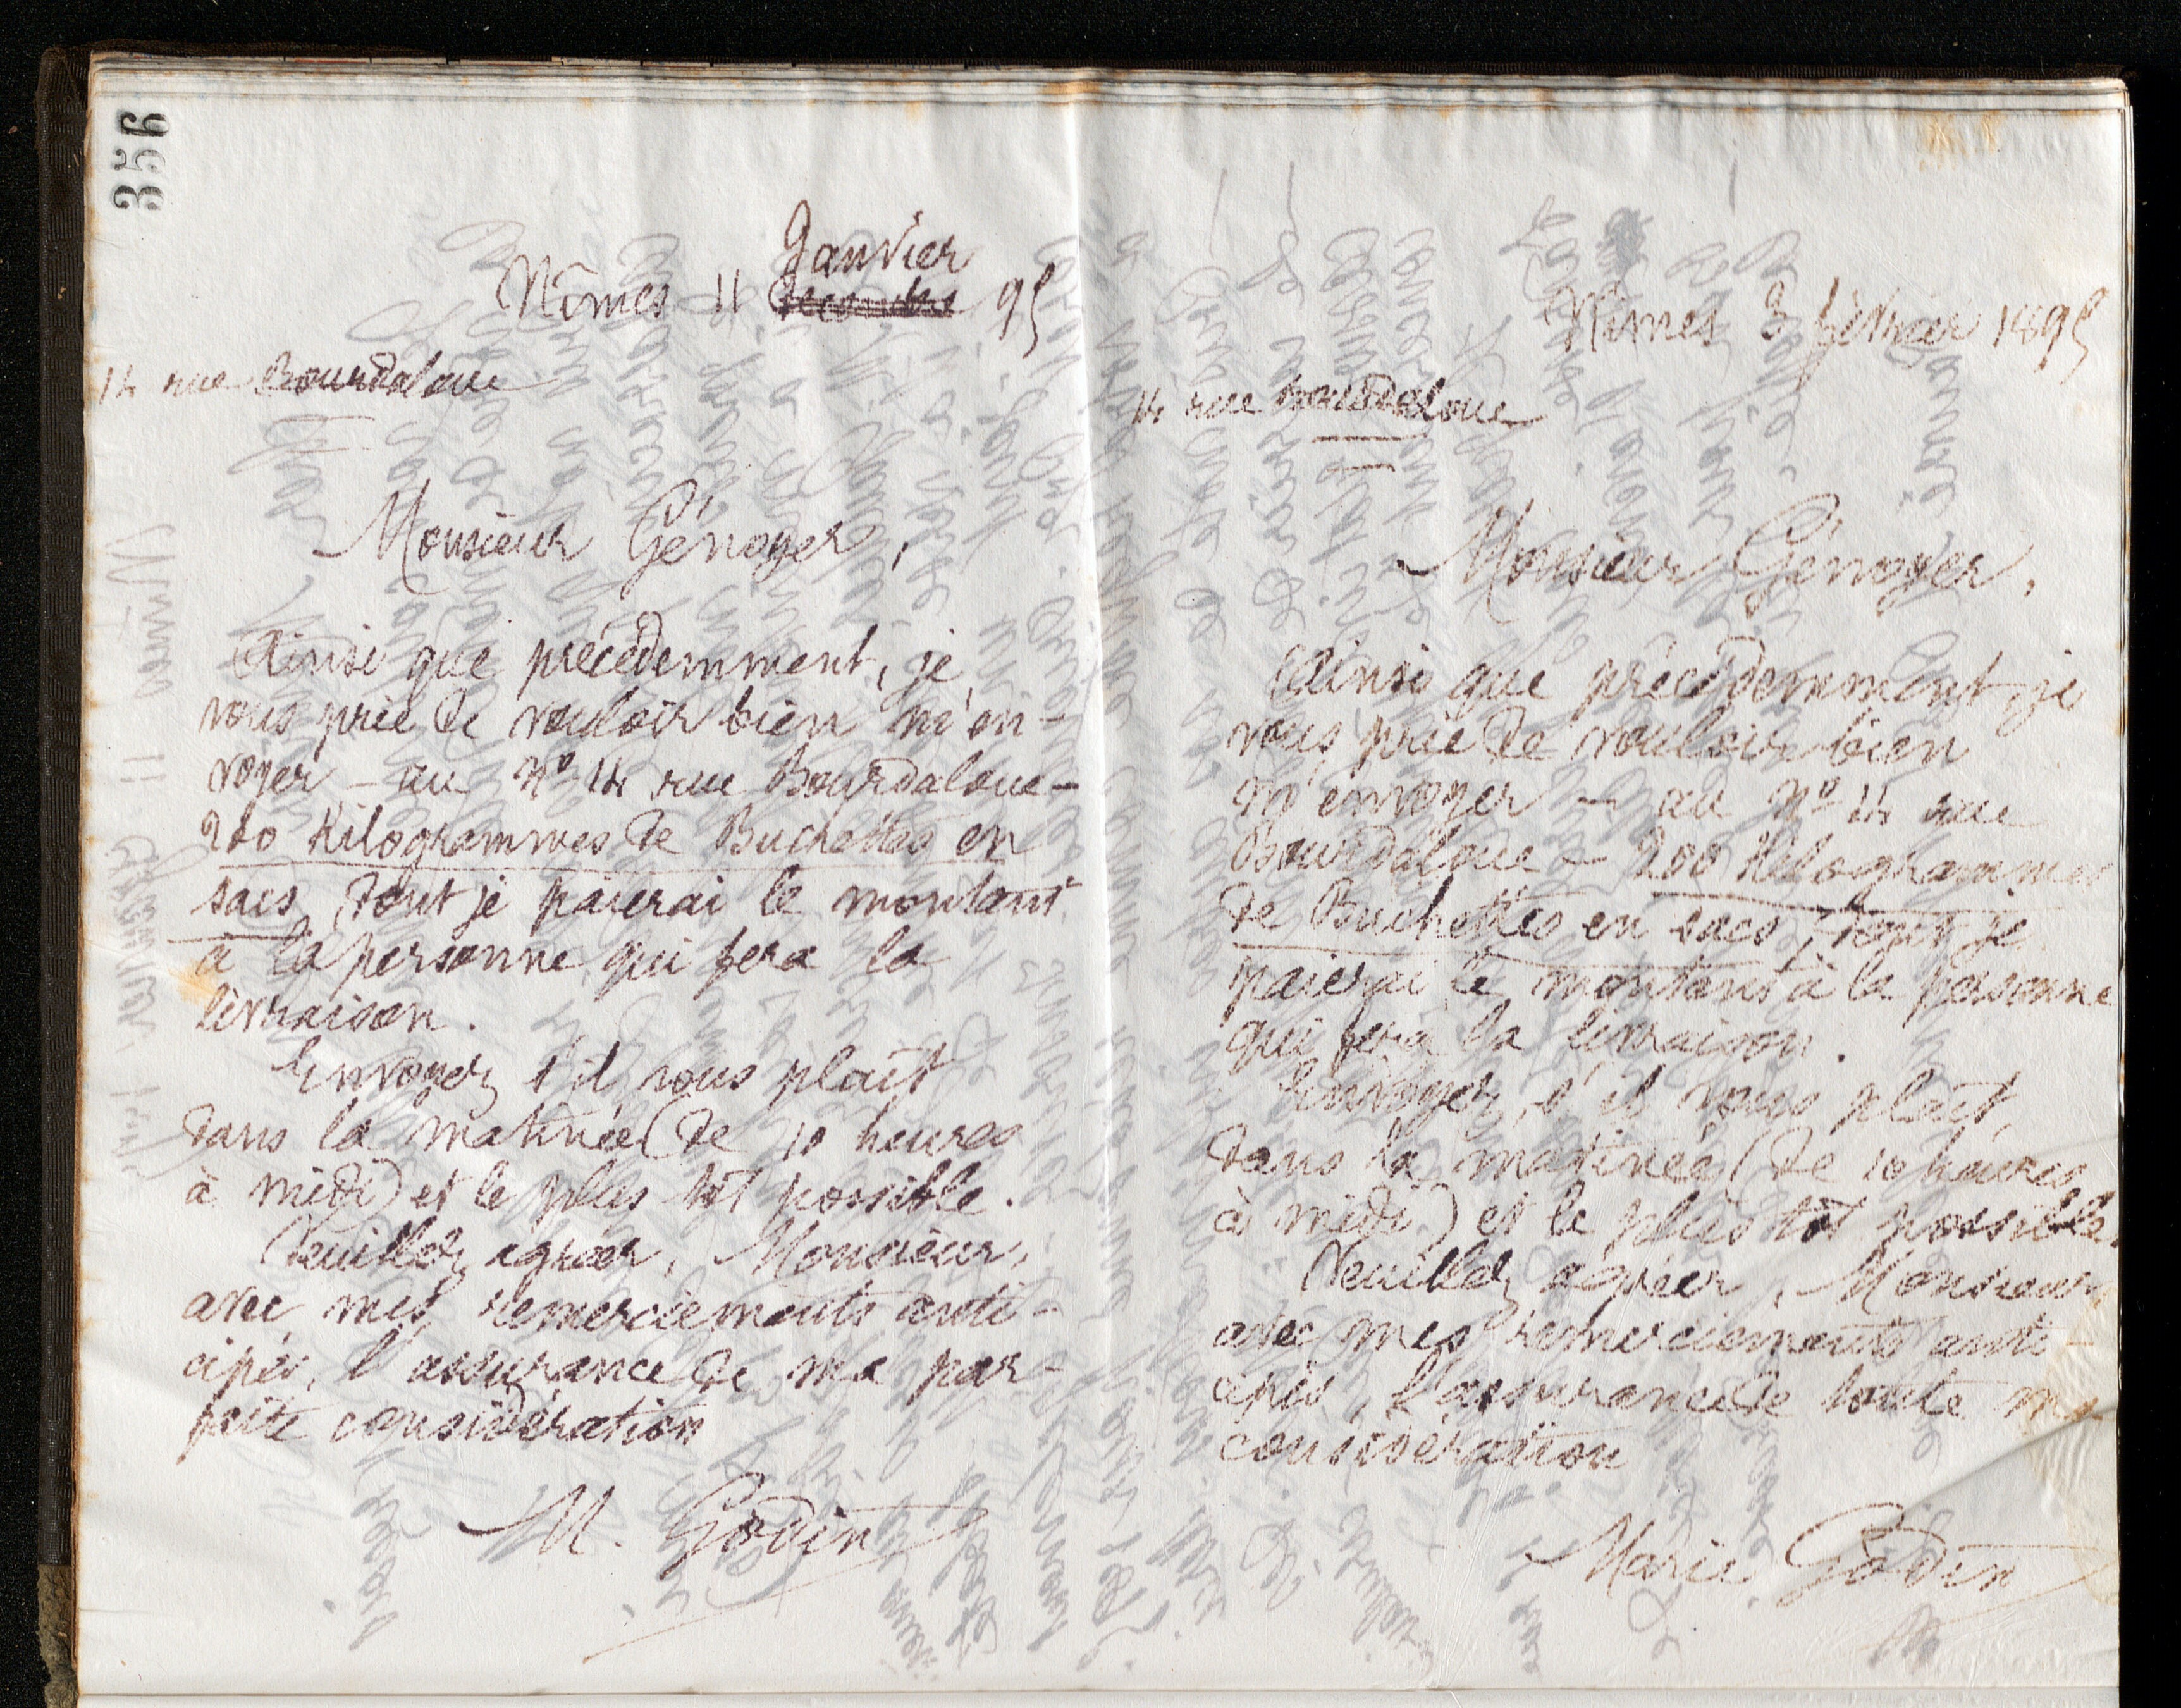 356
Janvier
Nîmes 11 decembre 95
14 rue Bourdaloue
Monsieur Génoyer,
Ainsi que précédemment, je
vous prie de vouloir bien m'en-
voyer – au Nº 14 rue Bourdaloue –
200 Kilogrammes de Buchettes en
sacs, dont je paierai le montant
à la personne qui fera la
livraison.
Envoyez s'il vous plaît
dans la matinée (de 10 heures
à midi) et le plus tôt possible.
Veuillez agréer, Monsieur,
avec mes remerciements anti-
cipés, l'assurance de ma par-
faite considération
M. Godin
Nîmes 3 février 1895
14 rue Bourdaloue
Monsieur Génoyer,
Ainsi que précédemment, je
vous prie de vouloir bien
m'envoyer – au Nº 14 rue
Bourdaloue – 200 Kilogrammes
de Buchettes en sacs, dont je
paierai le montant à la personne
qui fera la livraison.
Envoyez, s'il vous plaît,
dans la matinée (de 10 heures
à midi) et le plus tôt possible.
Veuillez agréer, Monsieur,
avec mes remerciements anti-
cipés, l'assurance de toute ma
considération
Marie Godin